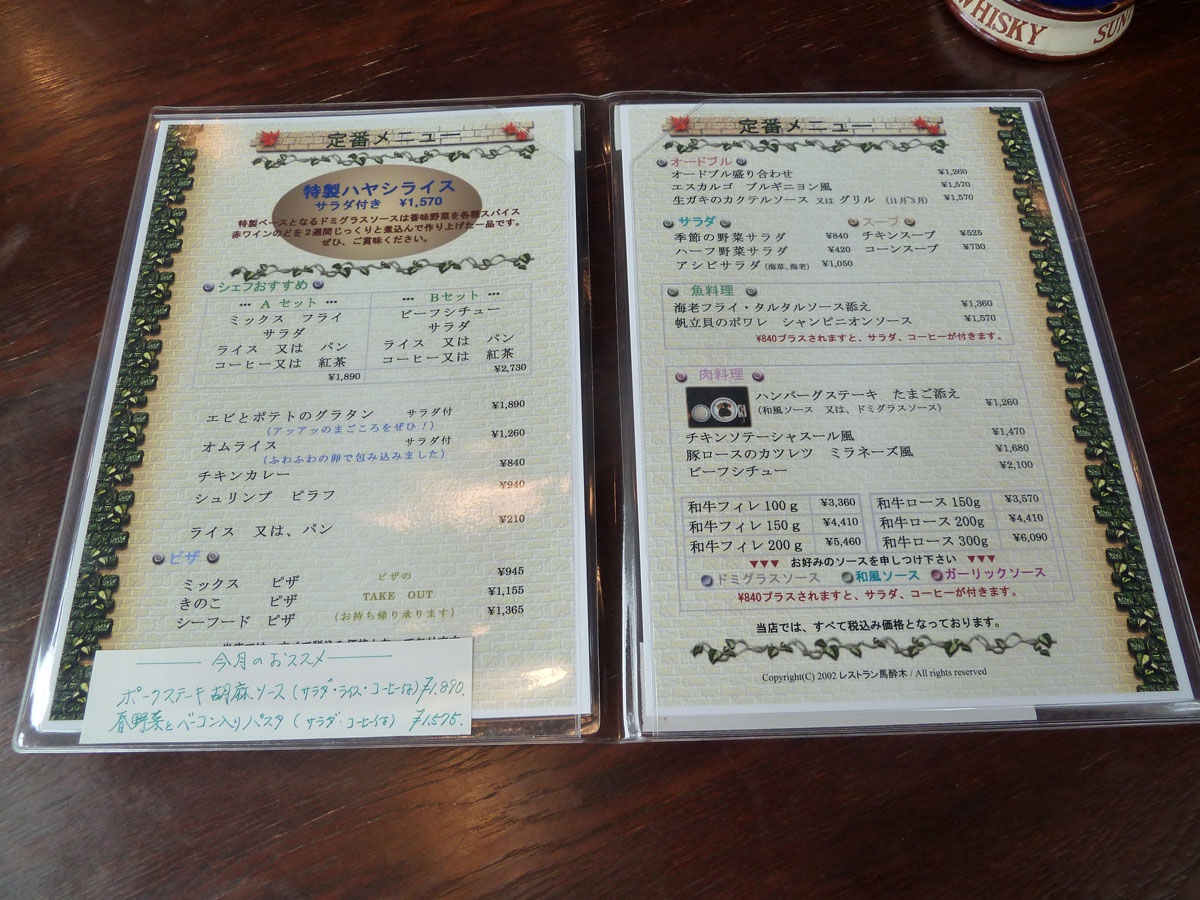 WHISKY SUN
定番メニュー
特製ハヤシライス
サラダ付き ¥1,570
特製ベースとなるドミグラスソースは香味野菜を各種スパイス
赤ワインのどを2週間じっくりと煮込んで作り上げた一品です。
ぜひ、ご賞味ください。
シェフおすすめ
••• Aセット •••
ミックス フライ
サラダ
ライス 又は パン
コーヒー又は 紅茶
¥1,890
••• Bセット •••
ビーフシチュー
サラダ
ライス 又は パン
コーヒー又は 紅茶
¥2,730
エビとポテトのグラタン サラダ付 ¥1,890
(アッアッのまごころをぜひ!)
オムライス サラダ付 ¥1,260
(ふわふわの卵で包み込みました)
チキンカレー ¥840
シュリンプ ピラフ ¥940
ライス 又は、パン ¥210
ピザ
ミックス ピザ ¥945
きのこ ピザ ¥1,155
シーフード ピザ ¥1,365
ピザの
TAKE OUT
(お持ち帰り承ります)
今月のおススメ
ポークステーキ 胡麻ソース (サラダ・ライス・コーヒー付) ¥1,890.
春野菜とベーコン入りパスタ (サラダ・コーヒー付) ¥1,575.
定番メニュー
オードブル
オードブル盛り合わせ ¥1,260
エスカルゴ ブルギニヨン風 ¥1,570
生ガキのカクテルソース 又は グリル (11月~3月) ¥1,570
サラダ
季節の野菜サラダ ¥840
ハーフ野菜サラダ ¥420
アシビサラダ(海草、海老) ¥1,050
スープ
チキンスープ ¥525
コーンスープ ¥730
魚料理
海老フライ・タルタルソース添え ¥1,360
帆立貝のポワレ シャンピニオンソース ¥1,570
¥840プラスされますと、サラダ、コーヒーが付きます。
肉料理
ハンバーグステーキ たまご添え ¥1,260
(和風ソース 又は、ドミグラスソース)
チキンソテーシャスール風 ¥1,470
豚ロースのカツレツ ミラネーズ風 ¥1,680
ビーフシチュー ¥2,100
和牛フィレ 100g ¥3,360
和牛フィレ 150g ¥4,410
和牛フィレ 200g ¥5,460
和牛ロース 150g ¥3,570
和牛ロース 200g ¥4,410
和牛ロース 300g ¥6,090
▼▼▼ お好みのソースを申しつけ下さい ▼▼▼
ドミグラスソース 和風ソース ガーリックソース
¥840プラスされますと、サラダ、コーヒーが付きます。
当店では、すべて税込み価格となっております。
Copyright(C) 2002 レストラン馬酔木 / All rights reserved